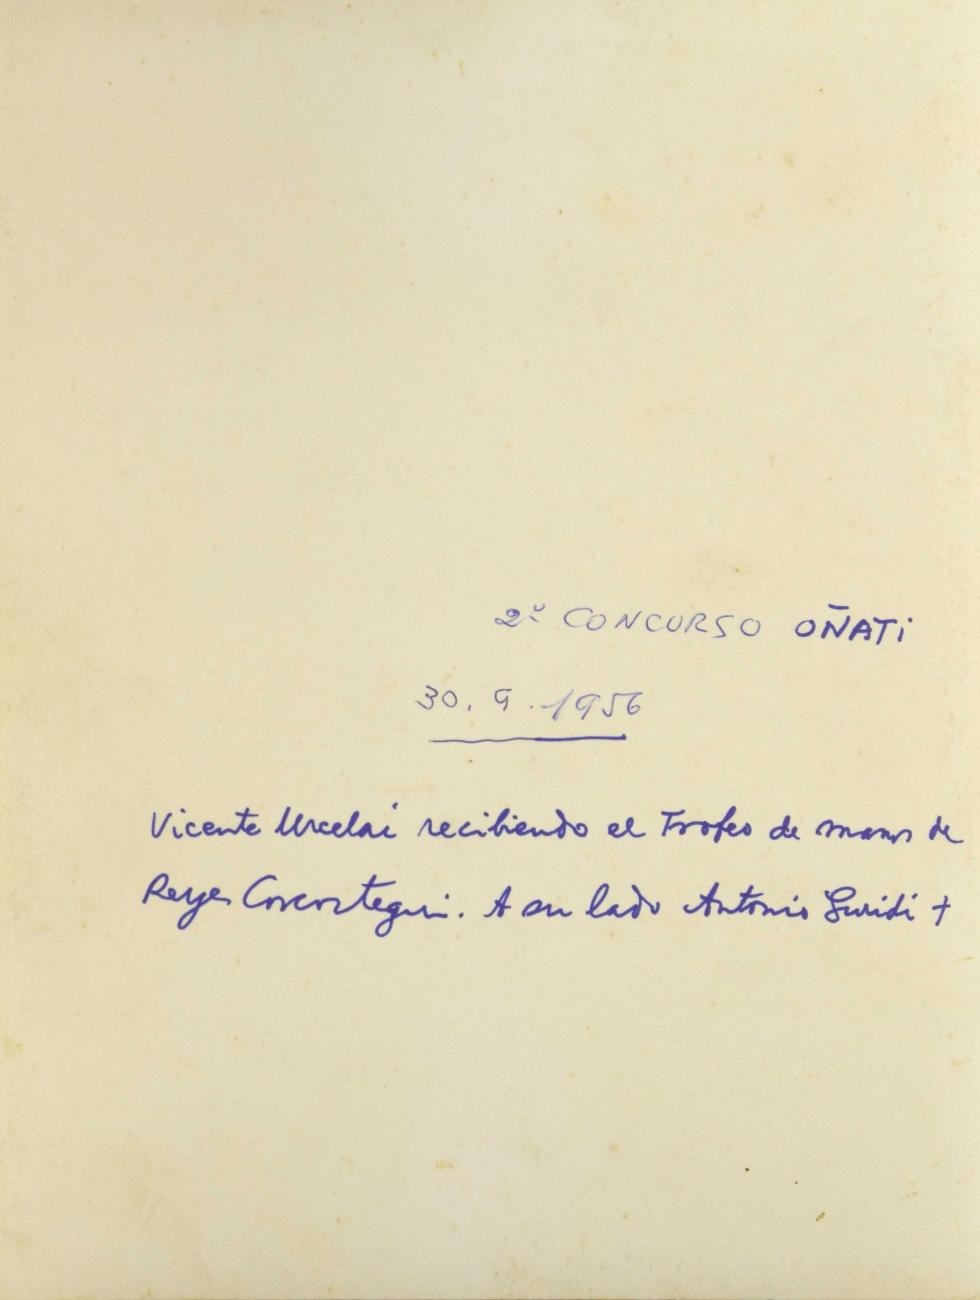 2º CONCURSO OÑATi
30. 9. 1956
Vicente Urcelai recibiendo el Trofeo de manos de
Reyes Corcostegui. A su lado Antonio Guridi +